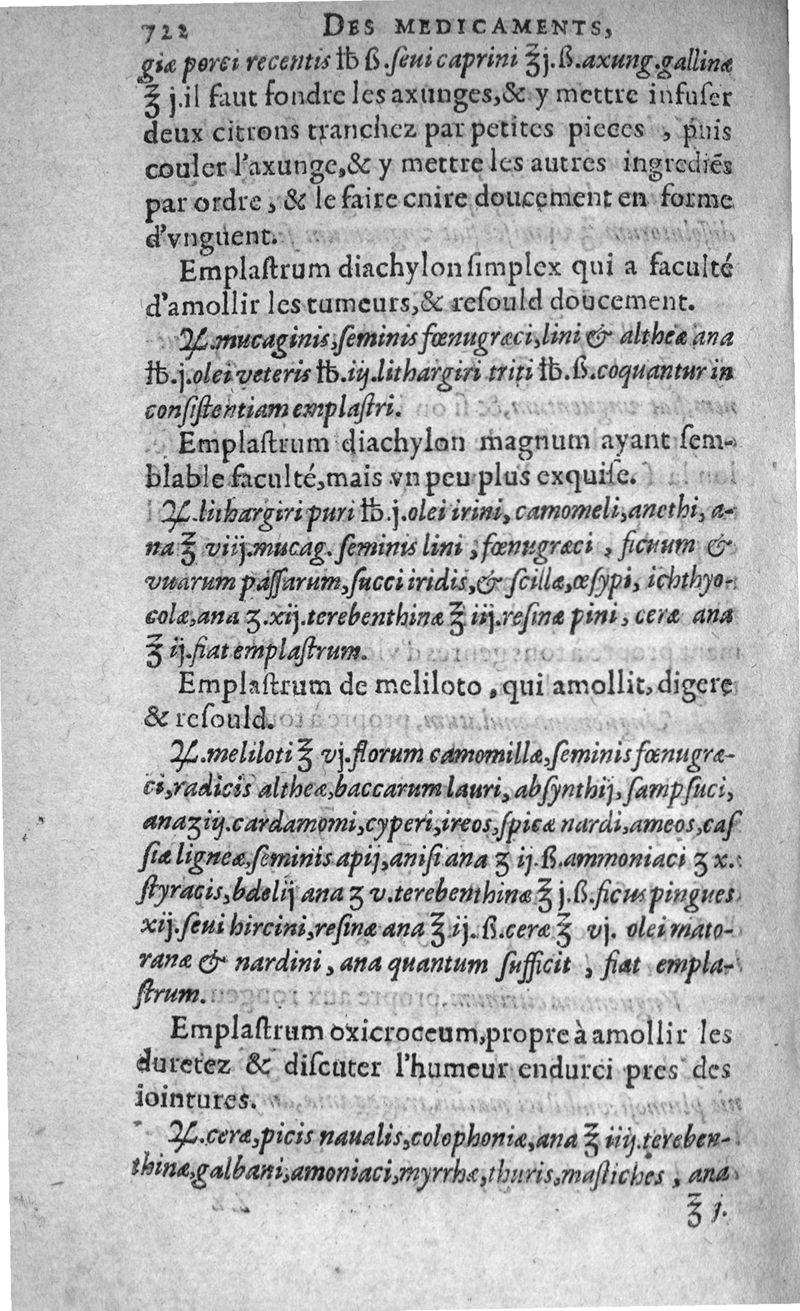 722 DES MEDICAMENTS,
giæ porci recentis ℔ ß.ſeui caprini ℥j.ß.axung.gallinæ
℥ j.il faut fondre les axunges,& y mettre infuſer
deux citrons tranchez par petites pieces , puis
couler l'axunge,& y mettre les autres ingrediẽs
par ordre, & le faire cnire doucement en forme
d'vnguent.
Emplaſtrum diachylon ſimplex qui a faculté
d'amollir les tumeurs,& reſould doucement.
♃.mucaginis,ſeminis fœnugræci,lini & altheæ ana
℔.j.olei veteris ℔.iij.lithargiri triti ℔.ß.coquantur in
conſiſtentiam emplaſtri.
Emplaſtrum diachylon magnum ayant ſem-
blable faculté,mais vn peu plus exquiſe.
♃.lithargiri puri ℔.j.olei irini, camomeli,anethi, a-
na ℥ viij.mucag. ſeminis lini , fœnugræci , ficuum &
vuarum paſſarum,ſucci iridis,& ſcillæ,œſypi, ichthyo-
colæ,ana ʒ.xij.terebenthinæ ℥ iij.reſinæ pini, ceræ ana
℥ ij.fiat emplaſtrum.
Emplaſtrum de meliloto , qui amollit, digere
& reſould.
♃.meliloti ℥ vj.florum camomillæ,ſeminis fœnugræ-
ci,radicis altheæ,baccarum lauri, abſynthij, ſampſuci,
ana ʒ iij.cardamomi,cyperi,ireos,ſpicæ nardi,ameos,caſ
ſiæ ligneæ,ſeminis apij,aniſi ana ʒ ij.ß.ammoniaci ʒ x.
ſtyracis,bdelij ana ʒ v.terebenthinæ ℥ j.ß.ficus pingues
xij.ſeui hircini,reſinæ ana ℥ ij. ß.ceræ ℥ vj. olei mato-
ranæ & nardini , ana quantum ſufficit , fiat empla-
ſtrum.
Emplaſtrum oxicroceum,propre à amollir les
duretez & diſcuter l'humeur endurci pres des
iointures.
♃.ceræ,picis naualis,colophoniæ,ana ℥ iiij.tereben-
thinæ,galbani,amoniaci,myrrhæ,thuris,maſtiches , ana
℥ j.